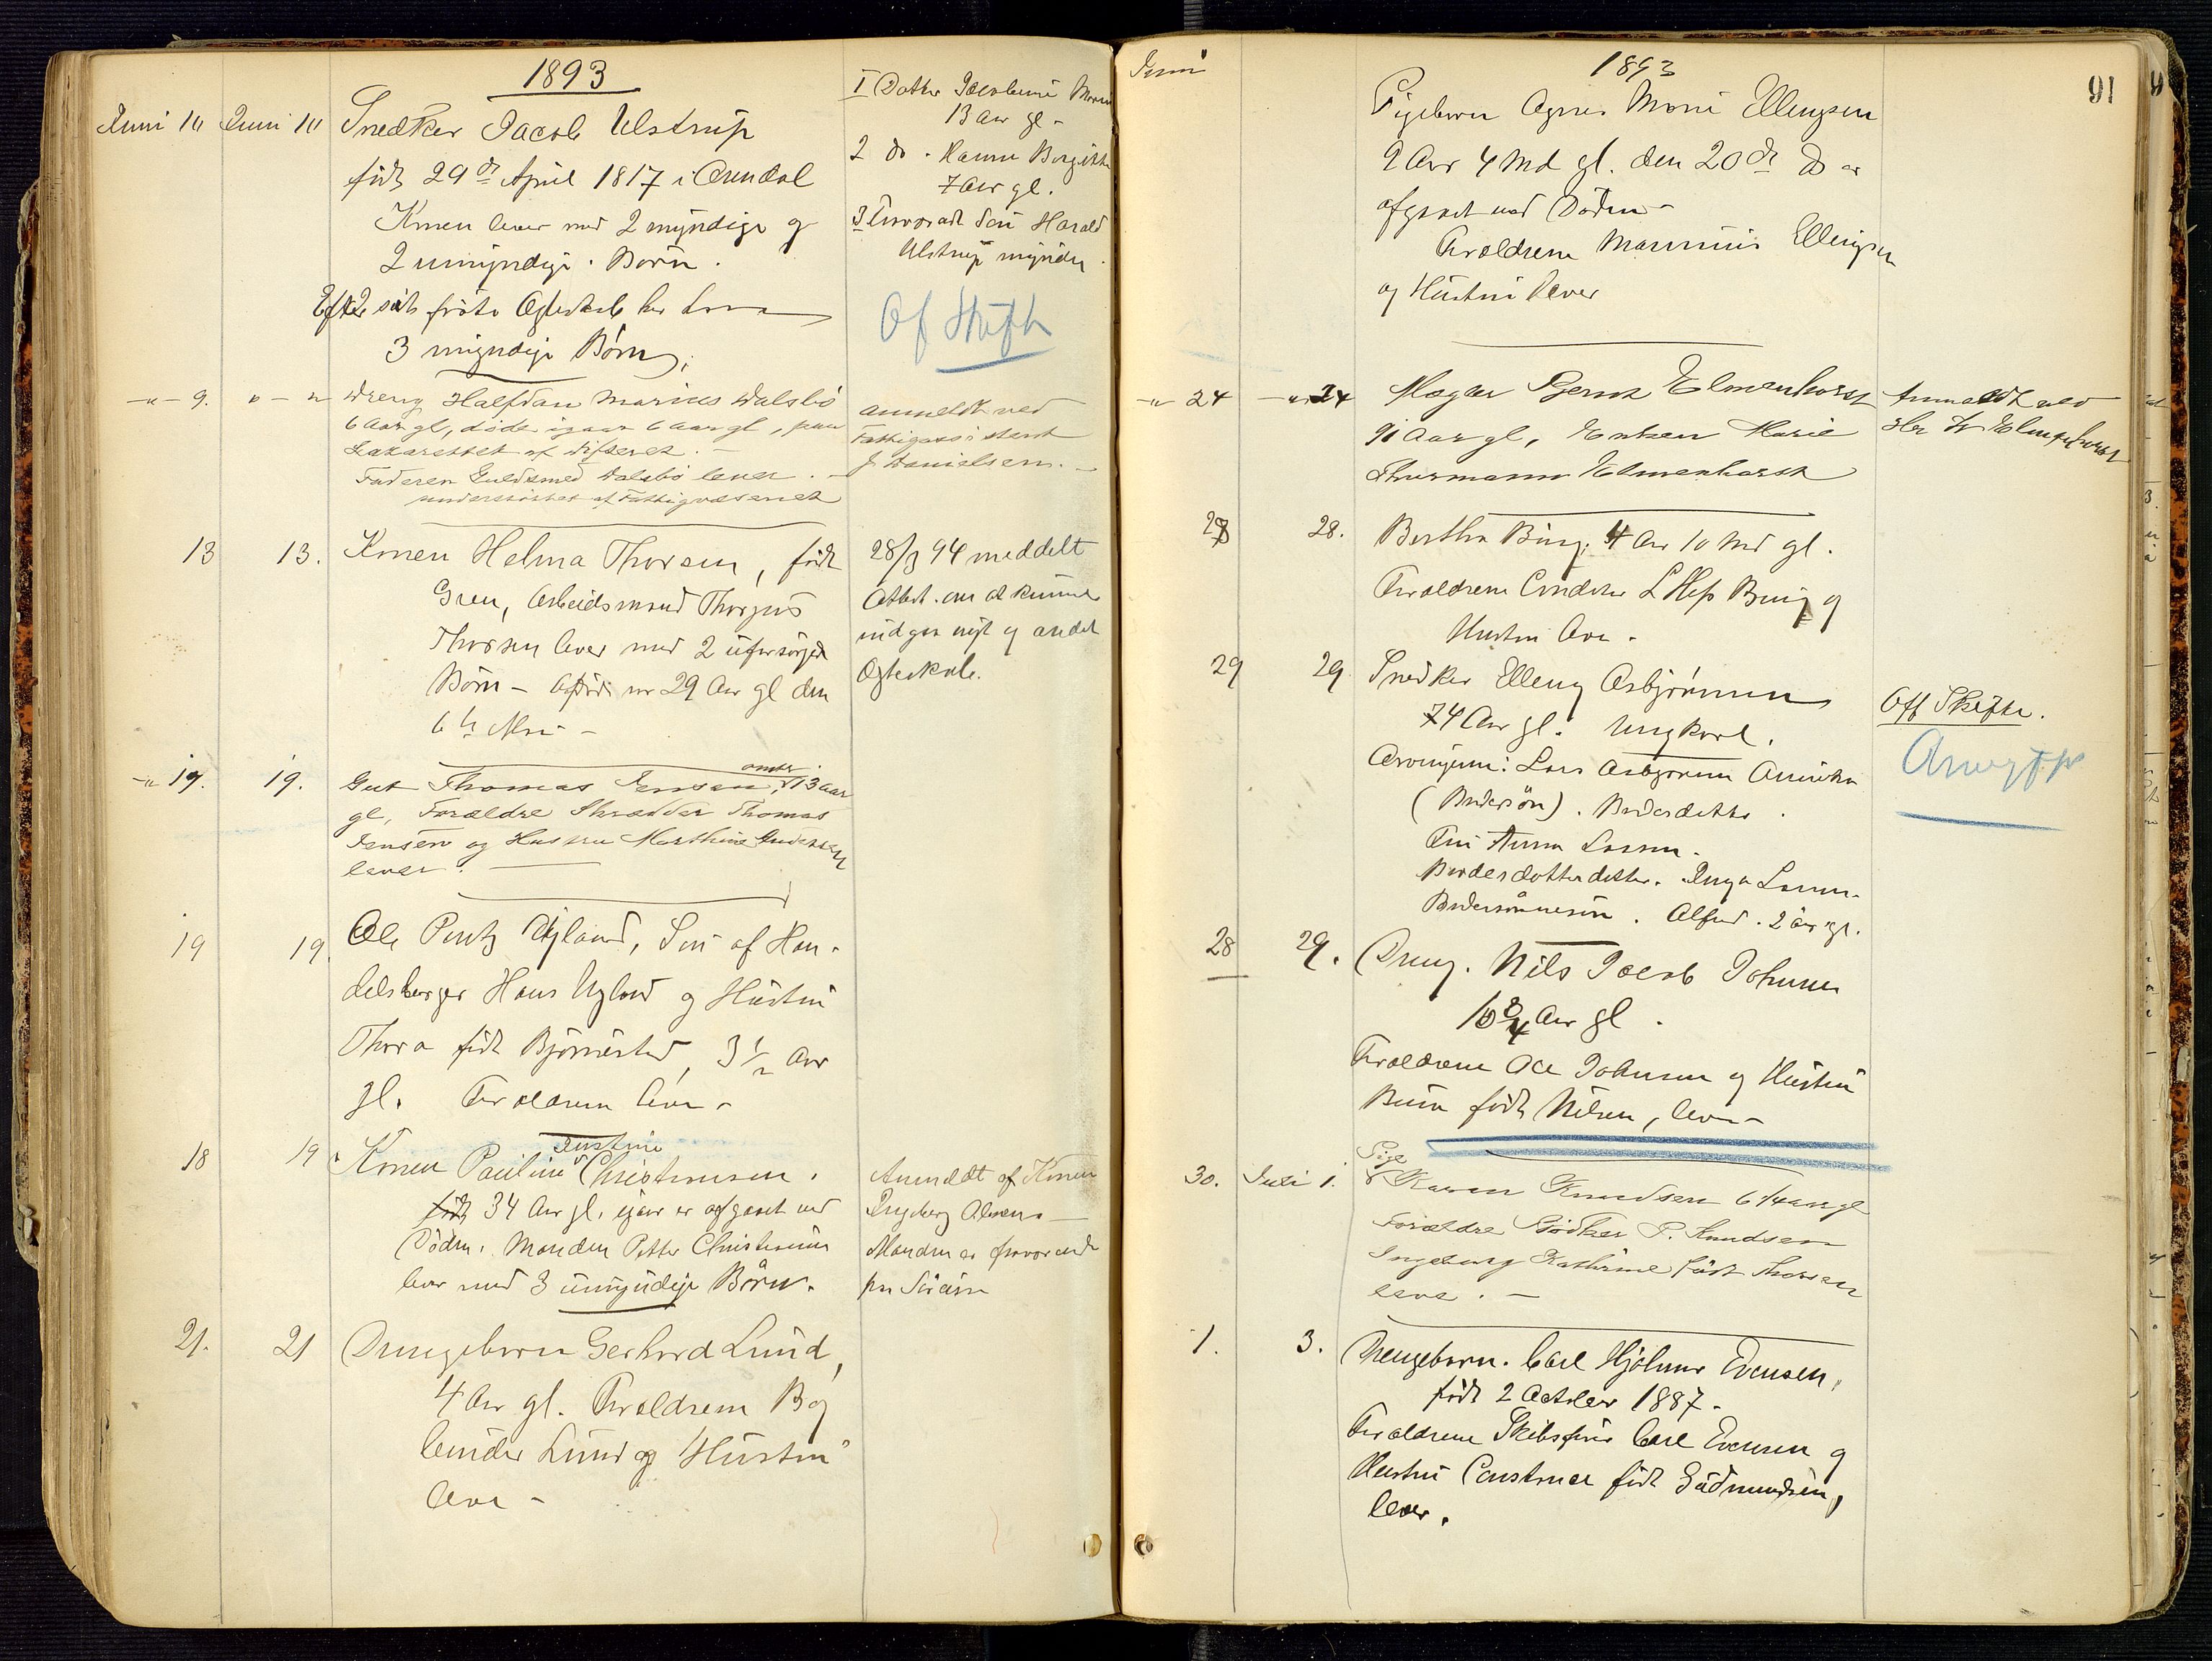 1893
Juni 10 Juni 10 Snedker Jacob Ulstrup
født 29de April 1817 i Arendal
Konen lever med 2 myndige og
2 umyndige Børn.
Efter sit første Ægteskab har
3 myndige Børn.
1 Datter Jacobine
13 Aar gl.
2 do. Hanna Birgitte
7 Aar gl.
3 Søn Harald
Ulstrup myndig.
Of Skifte
-"- 9. " - " Dreng Halfdan Marius Dalsbö
6 Aar gl, döde igaar 6 Aar gl, paa
Lazarettet af Difterit. -
Faderen Guldsmed Dalsbö lever. -
understöttet af Fattigvæsenet
anmeldt ved
Fattigassistent
J Danielsen. -
13 13. Konen Helma Thorsen, født
Gren, Arbeidsmand Thorgius
Thorsen lever med 2 uforsørgede
Børn - 29 Aar gl den
6te
28/3 94 meddelt
Attest. om at kunne
indgaa nyt og andet
Ægteskab.
-"- 19. 19. Gut Thomas Jensen, omtr 13 aar
gl, Forældre Skrædder Thomas
Jensen og Hustru Marthine Andersen
lever.
19 19. Ole Pentz Ugland, Søn af Han-
delsborger Hans Ugland og Hustru
Thora født Bjørnestad, 3 1/2 Aar
gl. Forældrene lever -
18 19 Konen Pauline Justine Christensen.
født 34 Aar gl. igaar er afgaaet ved
Døden. Manden Petter Christensen
lever med 3 umyndige Børn.
Anmeldt af Konen
Ingeborg Olsen
Manden er fraværende
paa Søreise
21. 21 Drengebarn Gerhard Lund,
4 Aar gl. Forældrene Bog
binder Lund og Hustru
lever -
Juni
1893
91
Pigebarn Agnes Marie Ellingsen
9 Aar 4 Md gl. den 20de ds er
afgaaet ved Døden -
Forældrene Ellingsen
og Hustru lever
-"- 24 -"- 24 Bernt Elmenhorst
91 Aar gl, Enken Marie
Thurmann Elmenhorst
Anmeldt ved
Hr Elmenhorst
28 28. Bertha Bing. 4 Aar 10 Md gl.
Forældrene Conditor L Hess Bing og
Hustru lever -
29 29 Snedker Elleng Asbjørnsen
74 Aar gl. Ungkarl.
Arvingerne: Lars Asbjørnsen Amerika
(Brodersøn). Broderdatter.
Anna Larsen.
Broderdatterdatter. Inga Larsen.
Brodersønnesøn. Alfred. 2 år gl.
Off Skifte.
28 29. Dreng. Nils Jacob Johnsen
10 3/4 Aar gl.
Forældrene Ole Johnsen og Hustru
født Nilsen, lever -
30. Juli 1. Pige Karen Knudsen 6 1/4 aar gl
Forældre Bödker P. Knudsen
Ingeborg Kathrine född Thorsen
leve. -
1. 3. Drengebarn. Carl Hjalmar Evensen,
født 2 October 1887.
Forældrene Skibsfører Carl Evensen og
Hustru Constance født Gudmundsen,
lever.